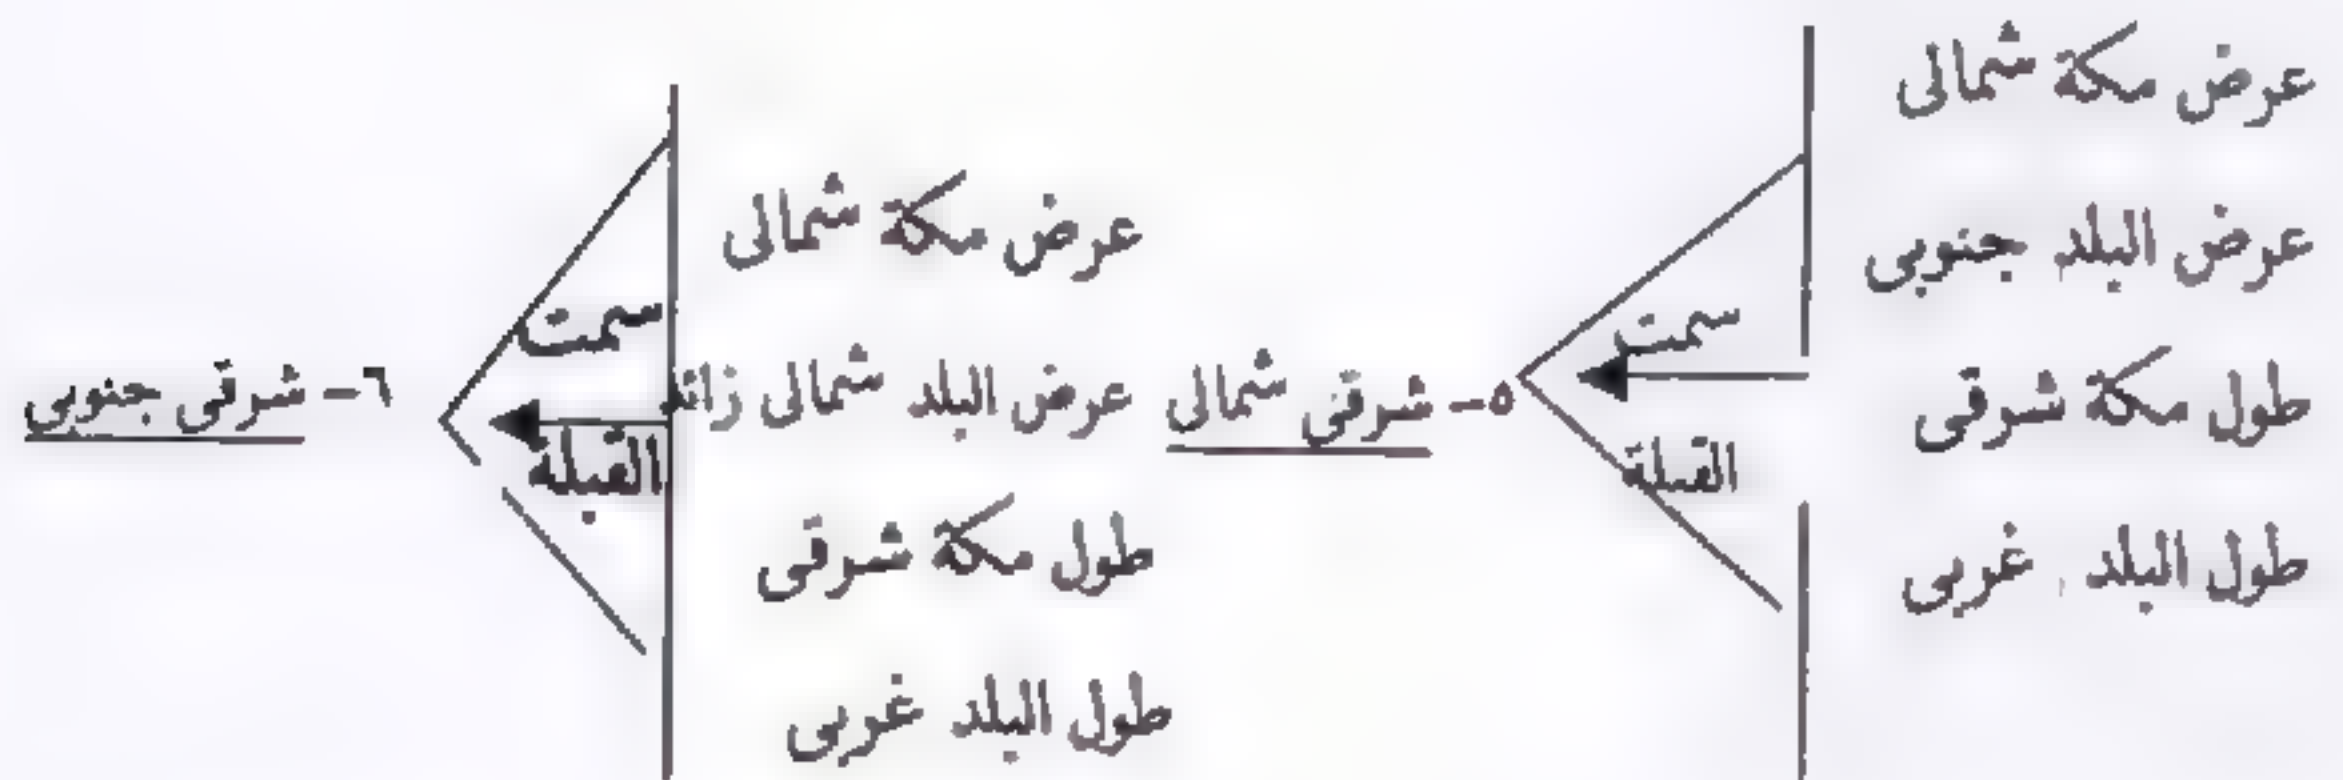 عرض مكة شمالى
عرض البلد جنوبى
طول مكة شرقى
طول البلد غربى
سمت
القبلة
٥- شرقى شمالى
عرض مكة شمالى
عرض البلد شمالى زائد
طول مكة شرقى
طول البلد غربى
سمت
القبلة
٦- شرقى جنوبى